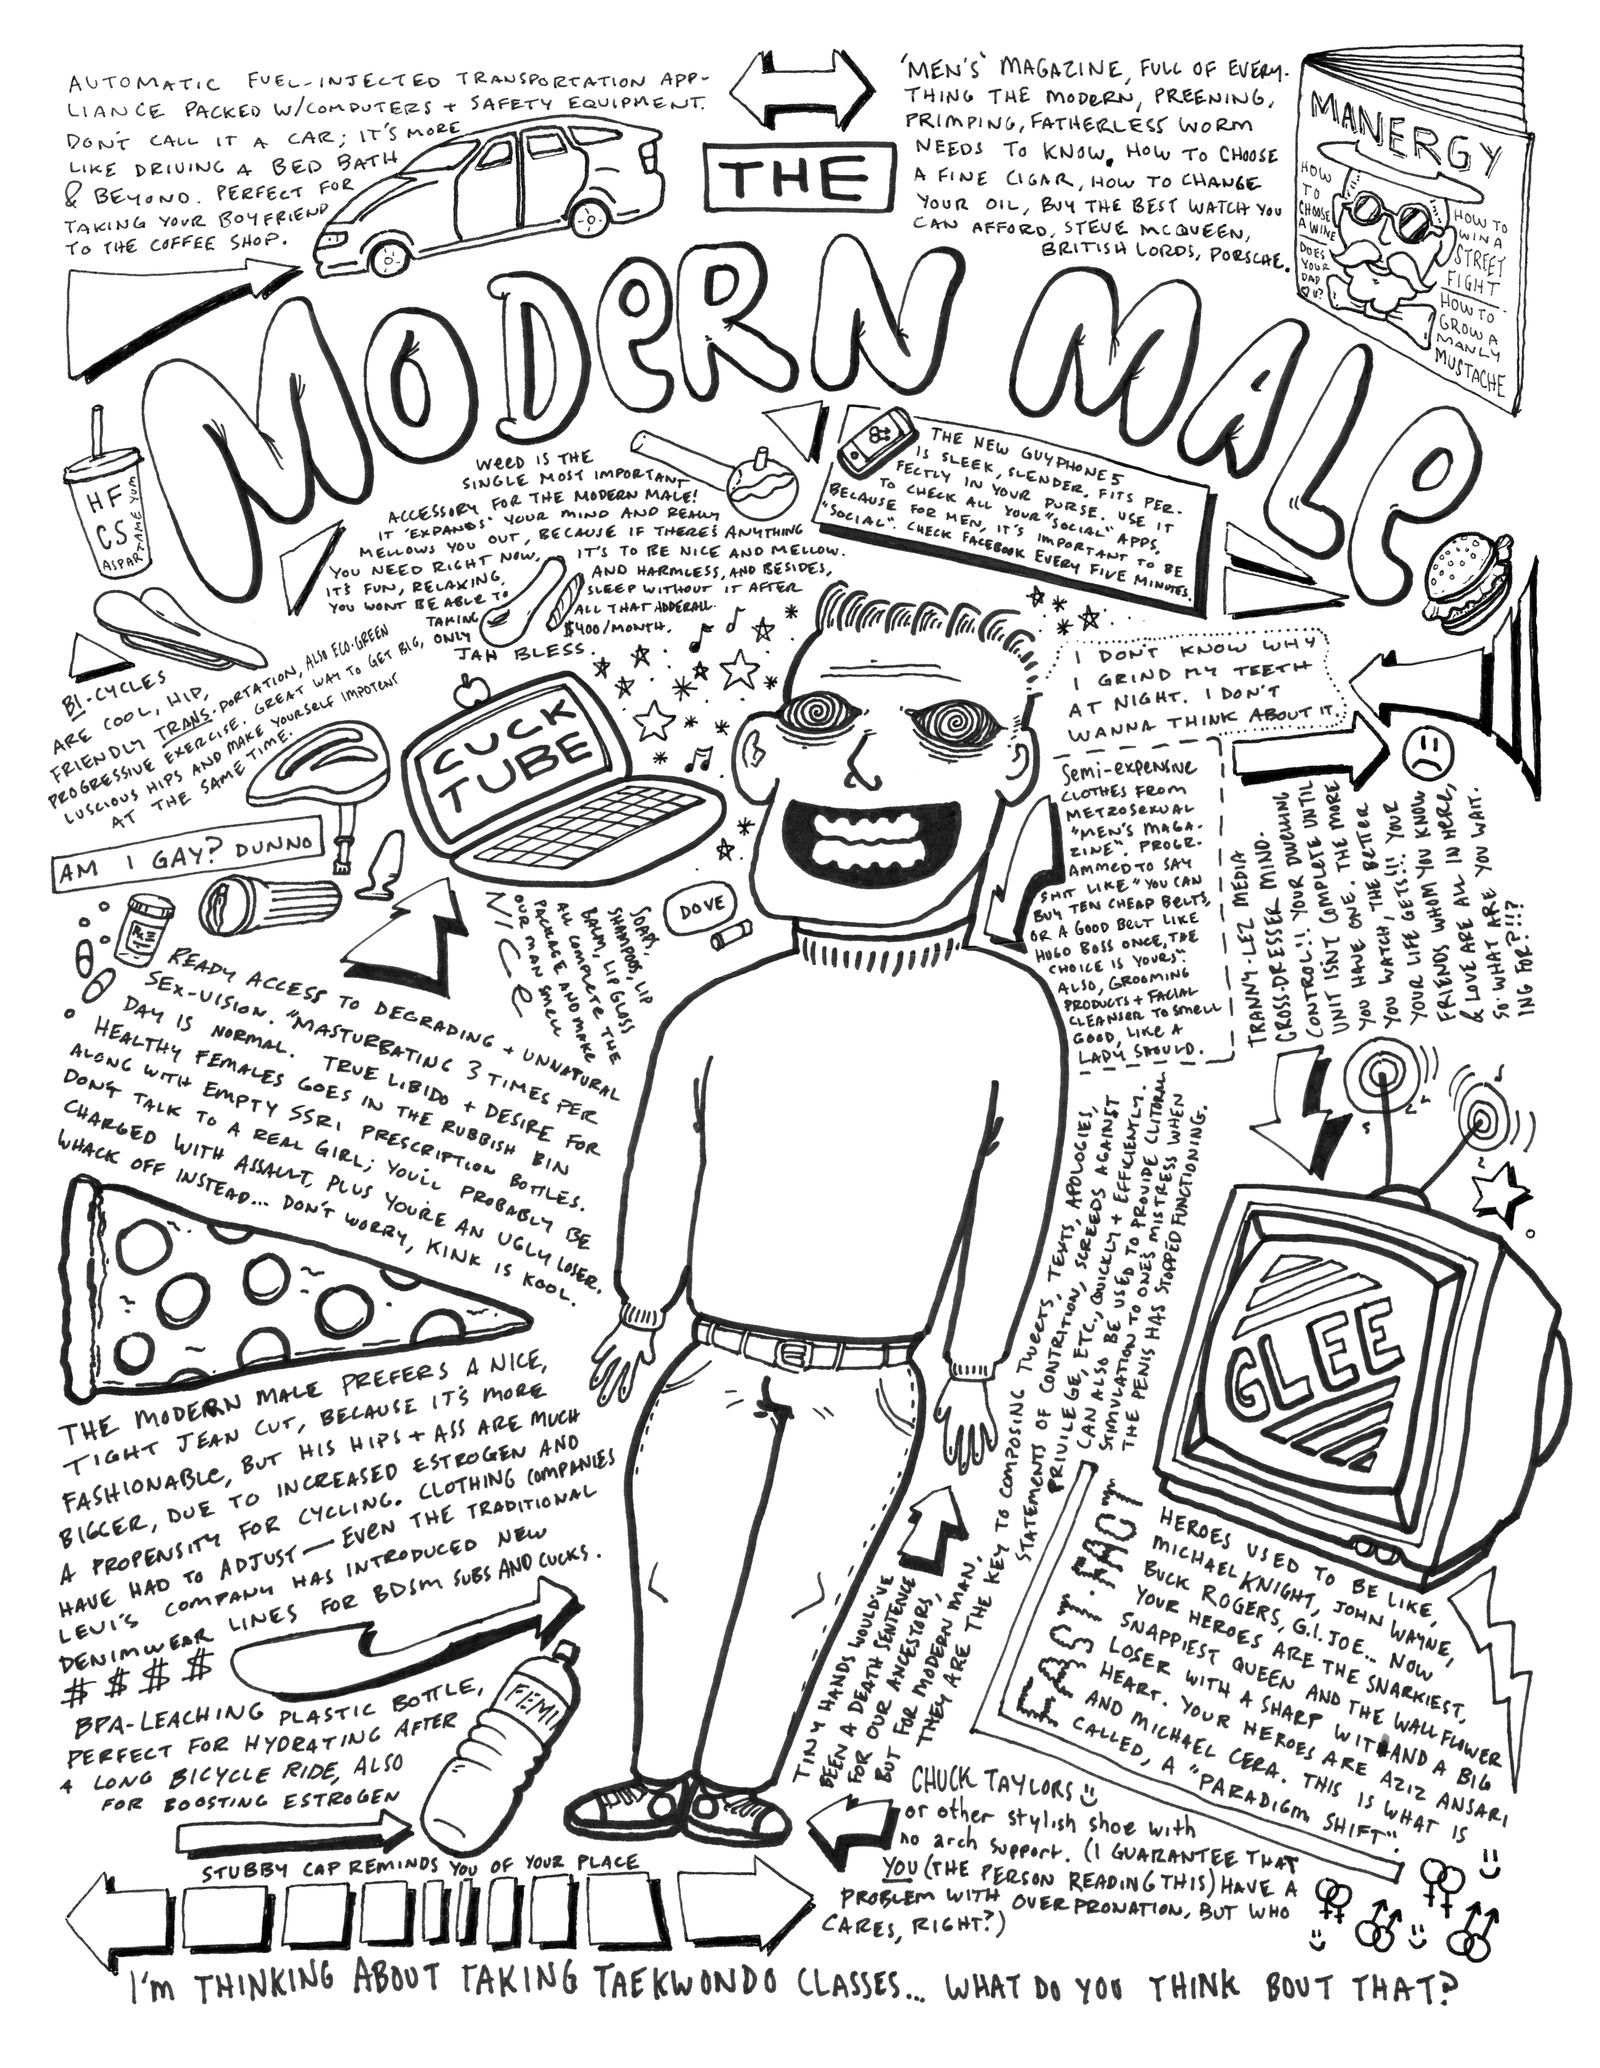 AUTOMATIC FUEL-INJECTED TRANSPORTATION APP-
LIANCE PACKED W/COMPUTERS + SAFETY EQUIPMENT.
DON'T CALL IT A CAR; IT'S MORE
LIKE DRIVING A BED BATH
& BEYOND. PERFECT FOR
TAKING YOUR BOYFRIEND
TO THE COFFEE SHOP.
THE
MODERN MALE
'MEN'S' MAGAZINE, FULL OF EVERY-
THING THE MODERN, PREENING,
PRIMPING, FATHERLESS WORM
NEEDS TO KNOW. HOW TO CHOOSE
A FINE CIGAR, HOW TO CHANGE
YOUR OIL, BUY THE BEST WATCH YOU
CAN AFFORD, STEVE MCQUEEN,
BRITISH LORDS, PORSCHE.
MANERGY
HOW
TO
CHOOSE
A WINE
DOES
YOUR
DAD
♥ U?
HOW TO
WIN A
STREET
FIGHT
HOW TO
GROW A
MANLY
MUSTACHE
HF
CS
ASPARTAME YUM
WEED IS THE
SINGLE MOST IMPORTANT
ACCESSORY FOR THE MODERN MALE!
IT "EXPANDS" YOUR MIND AND REALLY
MELLOWS YOU OUT, BECAUSE IF THERE'S ANYTHING
YOU NEED RIGHT NOW, IT'S TO BE NICE AND MELLOW.
IT'S FUN, RELAXING, AND HARMLESS, AND BESIDES,
YOU WON'T BE ABLE TO SLEEP WITHOUT IT AFTER
TAKING ALL THAT ADDERALL.
ONLY $400/MONTH.
JAH BLESS.
THE NEW GUYPHONE 5
IS SLEEK, SLENDER. FITS PER-
FECTLY IN YOUR PURSE. USE IT
TO CHECK ALL YOUR "SOCIAL" APPS,
BECAUSE FOR MEN, IT'S IMPORTANT TO BE
"SOCIAL". CHECK FACEBOOK EVERY FIVE MINUTES.
BI-CYCLES
ARE COOL, HIP,
FRIENDLY TRANS-PORTATION, ALSO ECO-GREEN
PROGRESSIVE EXERCISE. GREAT WAY TO GET BIG,
LUSCIOUS HIPS AND MAKE YOURSELF IMPOTENT
AT THE SAME TIME.
AM I GAY? DUNNO
CUCK
TUBE
I DON'T KNOW WHY
I GRIND MY TEETH
AT NIGHT. I DON'T
WANNA THINK ABOUT IT.
SEMI-EXPENSIVE
CLOTHES FROM
METROSEXUAL
"MEN'S MAGA-
ZINE". PROGR-
AMMED TO SAY
SHIT LIKE "YOU CAN
BUY TEN CHEAP BELTS,
OR A GOOD BELT LIKE
HUGO BOSS ONCE, THE
CHOICE IS YOURS".
ALSO, GROOMING
PRODUCTS + FACIAL
CLEANSER TO SMELL
GOOD, LIKE A
LADY SHOULD.
TRANNY-LEZ MEDIA
CROSS-DRESSER MIND.
CONTROL!! YOUR DWELLING
UNIT ISN'T COMPLETE UNTIL
YOU HAVE ONE. THE MORE
YOU WATCH, THE BETTER
YOUR LIFE GETS!!! YOUR
FRIENDS WHOM YOU KNOW
& LOVE ARE ALL IN HERE,
SO WHAT ARE YOU WAIT-
ING FOR?!!?
DOVE
SOAPS,
SHAMPOOS, LIP
BALM, LIP GLOSS
ALL COMPLETE THE
PACKAGE AND MAKE
OUR MAN SMELL
NICE
READY ACCESS TO DEGRADING + UNNATURAL
SEX-VISION. "MASTURBATING 3 TIMES PER
DAY IS NORMAL. TRUE LIBIDO + DESIRE FOR
HEALTHY FEMALES GOES IN THE RUBBISH BIN
ALONG WITH EMPTY SSRI PRESCRIPTION BOTTLES.
DON'T TALK TO A REAL GIRL; YOU'LL PROBABLY BE
CHARGED WITH ASSAULT, PLUS YOU'RE AN UGLY LOSER.
WHACK OFF INSTEAD... DON'T WORRY, KINK IS KOOL.
THE MODERN MALE PREFERS A NICE,
TIGHT JEAN CUT, BECAUSE IT'S MORE
FASHIONABLE, BUT HIS HIPS + ASS ARE MUCH
BIGGER, DUE TO INCREASED ESTROGEN AND
A PROPENSITY FOR CYCLING. CLOTHING COMPANIES
HAVE HAD TO ADJUST — EVEN THE TRADITIONAL
LEVI'S COMPANY HAS INTRODUCED NEW
DENIMWEAR LINES FOR BDSM SUBS AND CUCKS.
$ $ $ $
BPA-LEACHING PLASTIC BOTTLE,
PERFECT FOR HYDRATING AFTER
A LONG BICYCLE RIDE, ALSO
FOR BOOSTING ESTROGEN
FEMI
STUBBY CAP REMINDS YOU OF YOUR PLACE
TINY HANDS WOULD'VE
BEEN A DEATH SENTENCE
FOR OUR ANCESTORS,
BUT FOR MODERN MAN,
THEY ARE THE KEY TO COMPOSING TWEETS, TEXTS, APOLOGIES,
STATEMENTS OF CONTRITION, SCREEDS AGAINST
PRIVILEGE, ETC., QUICKLY + EFFICIENTLY.
CAN ALSO BE USED TO PROVIDE CLITORAL
STIMULATION TO ONE'S MISTRESS WHEN
THE PENIS HAS STOPPED FUNCTIONING.
GLEE
HEROES USED TO BE LIKE,
MICHAEL KNIGHT, JOHN WAYNE,
BUCK ROGERS, G.I. JOE... NOW
YOUR HEROES ARE THE SNARKIEST,
SNAPPIEST QUEEN AND THE WALLFLOWER
LOSER WITH A SHARP WIT AND A BIG
HEART. YOUR HEROES ARE AZIZ ANSARI
AND MICHAEL CERA. THIS IS WHAT IS
CALLED, A "PARADIGM SHIFT".
CHUCK TAYLORS
or other stylish shoe with
no arch support. (I GUARANTEE THAT
YOU (THE PERSON READING THIS) HAVE A
PROBLEM WITH OVERPRONATION, BUT WHO
CARES, RIGHT?)
I'M THINKING ABOUT TAKING TAEKWONDO CLASSES... WHAT DO YOU THINK BOUT THAT?